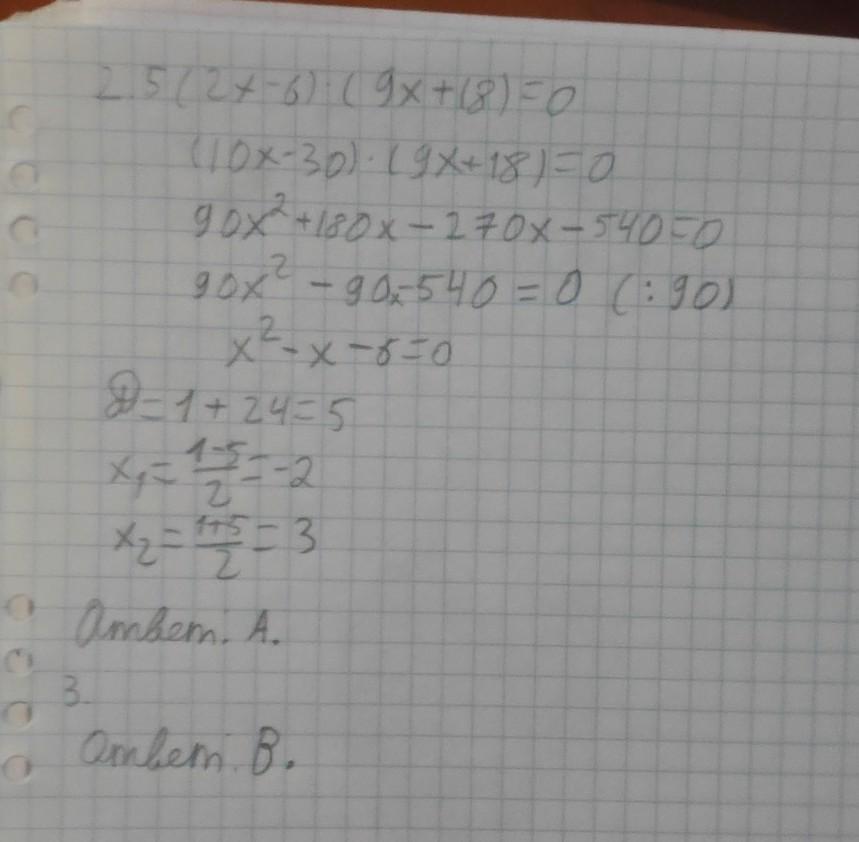 2. 5(2x-6)·(9x+18)=0
(10x-30)·(9x+18)=0
90x²+180x-270x-540=0
90x²-90x-540=0 (:90)
x²-x-6=0
D=1+24=5
x₁=\frac{1-5}{2}=-2
x₂=\frac{1+5}{2}=3
Ответ: A.
3.
Ответ: B.